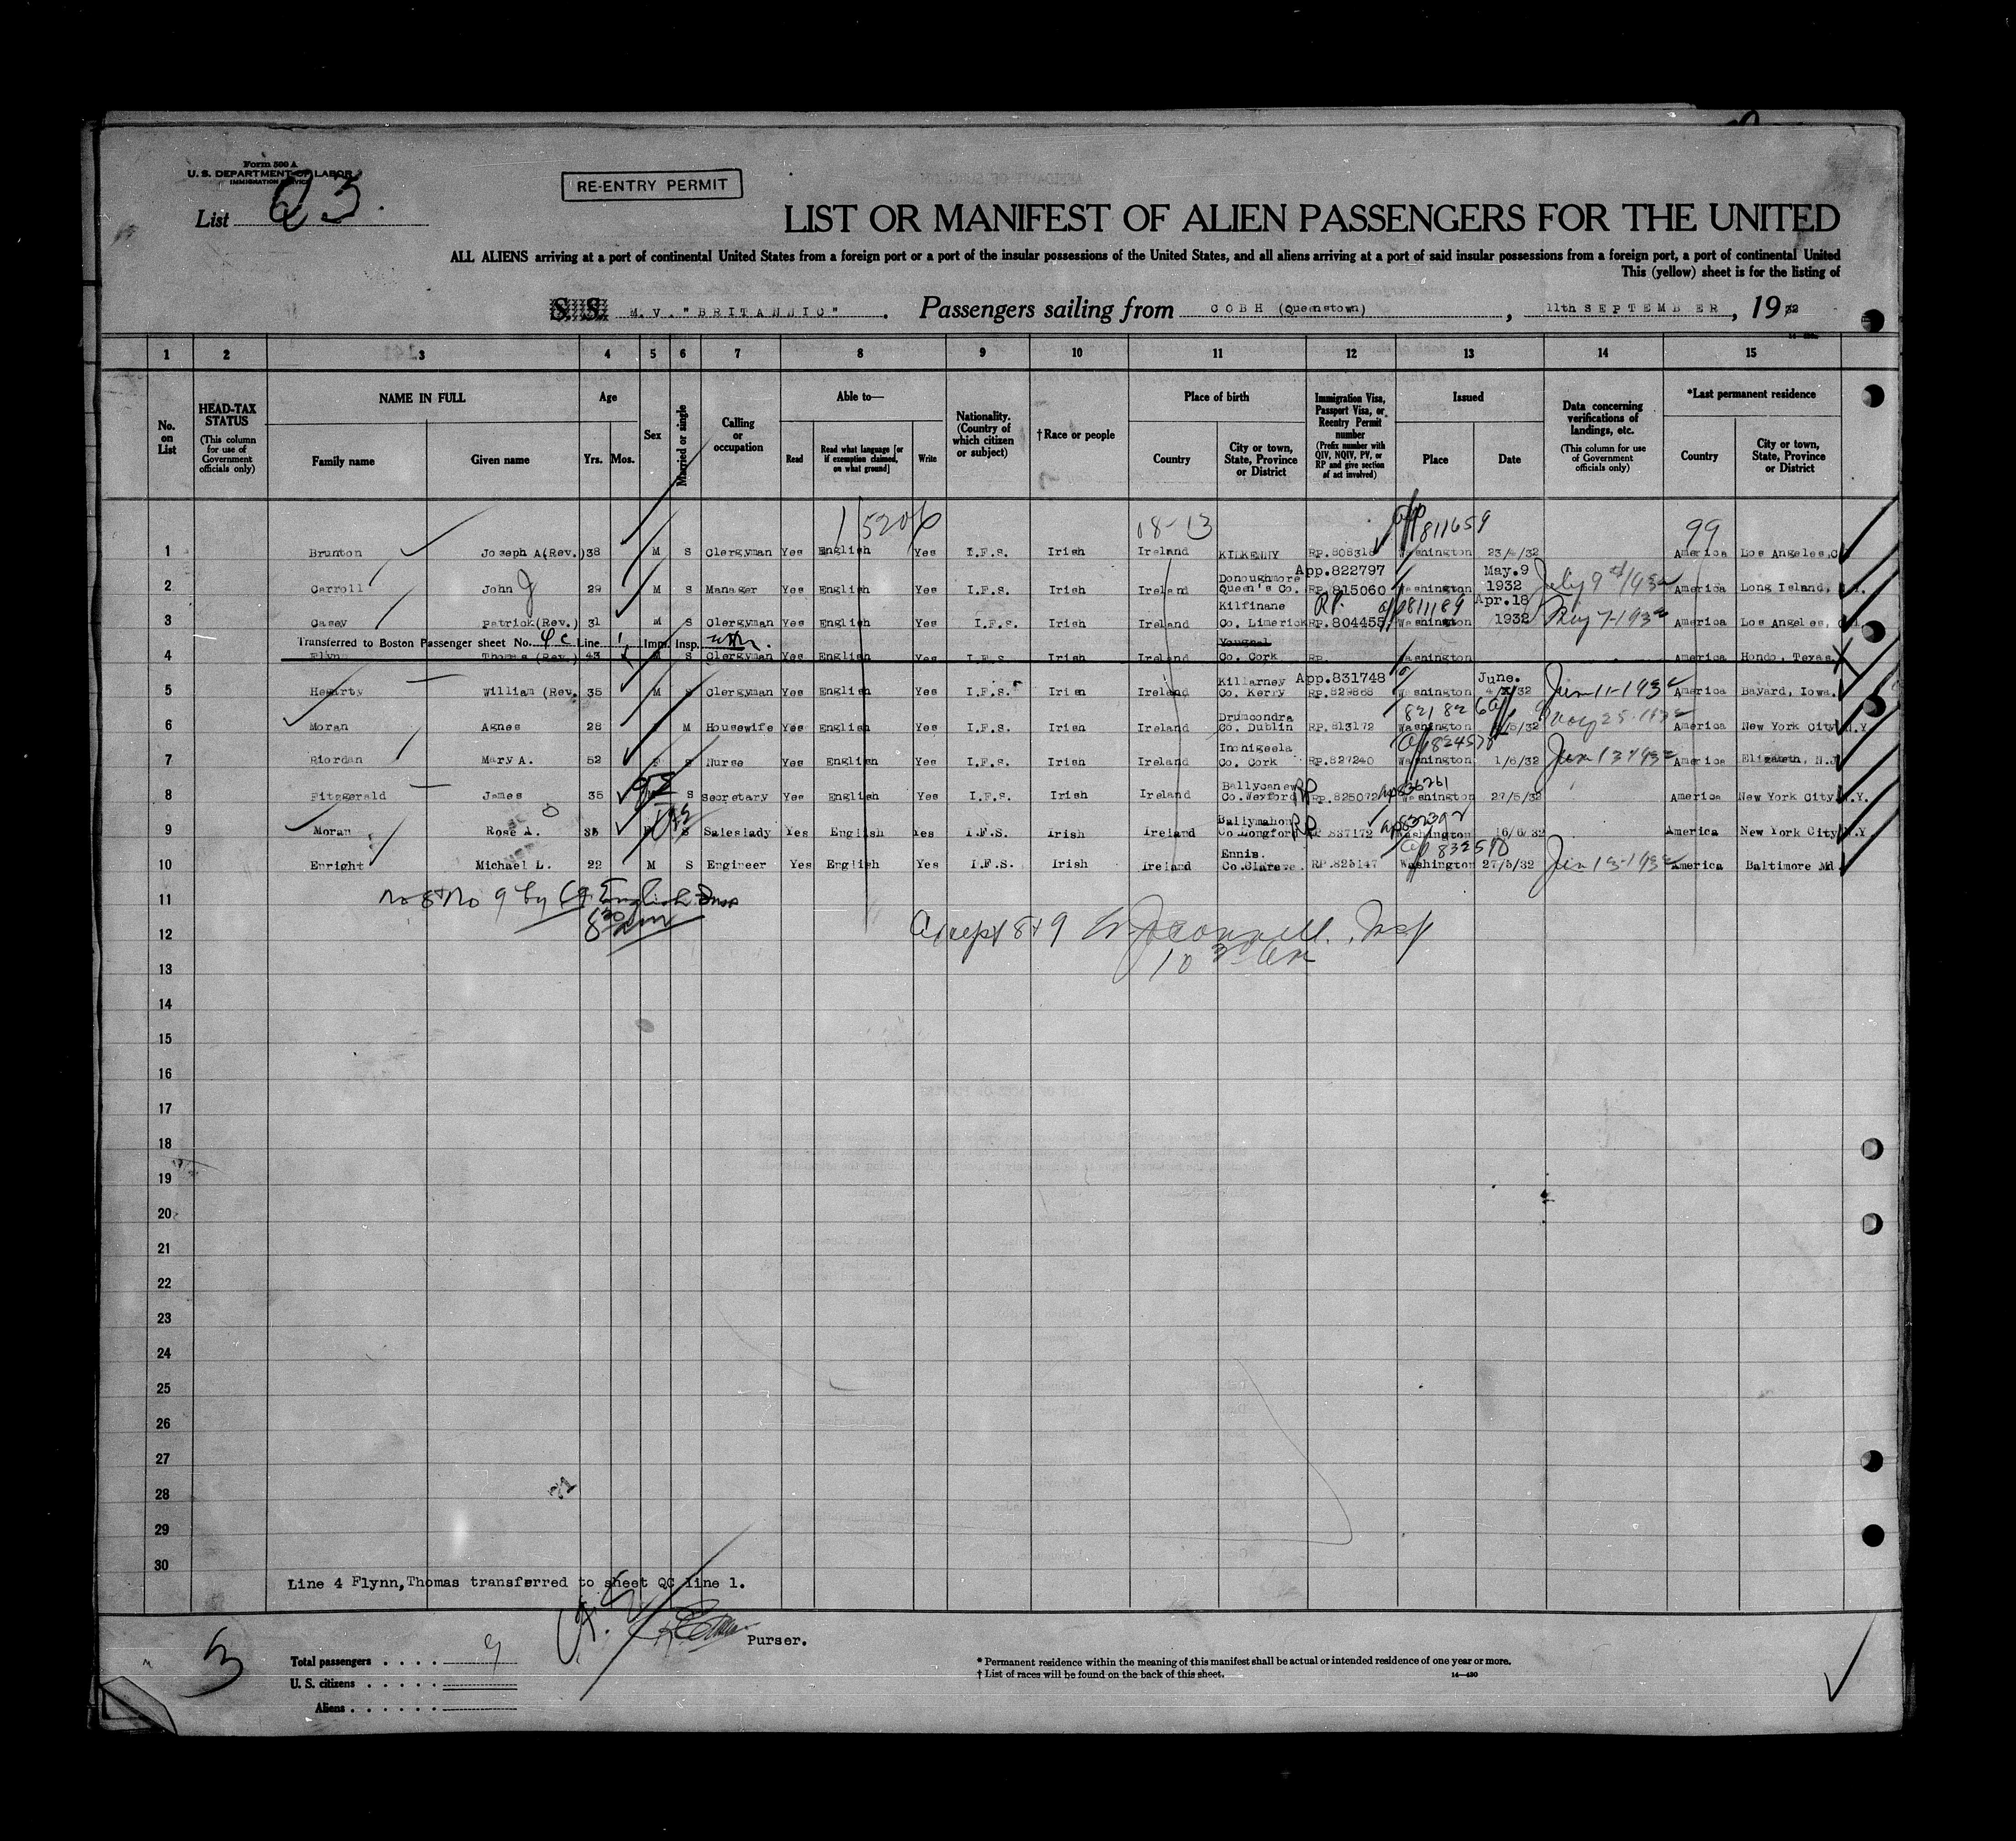 Form 500 A
U. S. DEPARTMENT OF LABOR
IMMIGRATION SERVICE
List 23.
RE-ENTRY PERMIT
LIST OR MANIFEST OF ALIEN PASSENGERS FOR THE UNITED
ALL ALIENS arriving at a port of continental United States from a foreign port or a port of the insular possessions of the United States, and all aliens arriving at a port of said insular possessions from a foreign port, a port of continental United
This (yellow) sheet is for the listing of
S. S. M.V. "BRITANNIC". Passengers sailing from COBH (Queenstown), 11th SEPTEMBER, 1932
1 2 3 4 5 6 7 8 9 10 11 12 13 14 15
No. on List
HEAD-TAX STATUS (This column for use of Government officials only)
NAME IN FULL Family name Given name
Age Yrs. Mos.
Sex
Married or single
Calling or occupation
Able to— Read Read what language [or if exemption claimed, on what ground] Write
Nationality. (Country of which citizen or subject)
†Race or people
Place of birth Country City or town, State, Province or District
Immigration Visa, Passport Visa, or Reentry Permit number (Prefix number with QIV, NQIV, PV, or RP and give section of act involved)
Issued Place Date
Data concerning verifications of landings, etc. (This column for use of Government officials only)
*Last permanent residence Country City or town, State, Province or District
08-13 811659 99
1 Brunton Joseph A(Rev.) 38 M S Clergyman Yes English Yes I.F.S. Irish Ireland KILKENNY RP.808318 Washington 23/4/32 America Los Angeles,
App.822797 May.9
2 Carroll John J 29 M S Manager Yes English Yes I.F.S. Irish Ireland Donoughmore Queen's Co. RP.815060 Washington 1932 America Long Island, N.Y.
RP. 811189 Apr.18
3 Casey Patrick(Rev.) 31 M S Clergyman Yes English Yes I.F.S. Irish Ireland Kilfinane Co. Limerick RP.804455 Washington 1932 America Los Angeles,
Transferred to Boston Passenger sheet No. QC Line 1 Imm. Insp.
4 Flynn Thomas (Rev.) 43 M S Clergyman Yes English Yes I.F.S. Irish Ireland Youghal Co. Cork RP. Washington America Hondo, Texas.
App.831748 June.
5 Hegarty William (Rev. 35 M S Clergyman Yes English Yes I.F.S. Irish Ireland Killarney Co. Kerry RP.829868 Washington 32 Jun 11-1932 America Bayard, Iowa.
821826
6 Moran Agnes 28 M Housewife Yes English Yes I.F.S. Irish Ireland Drumcondra Co. Dublin RP.813172 Washington /5/32 America New York City N.Y.
824570
7 Riordan Mary A. 52 F S Nurse Yes English Yes I.F.S. Irish Ireland Inchigeela Co. Cork RP.827240 Washington 1/6/32 Jun 13 1932 America Elizabeth, N.J
8 Fitzgerald James 35 M S Secretary Yes English Yes I.F.S. Irish Ireland Ballycanew Co.Wexford RP RP.825072 Washington 27/5/32 America New York City N.Y.
9 Moran Rose A. 35 F S Saleslady Yes English Yes I.F.S. Irish Ireland Ballymahon Co Longford RP RP 837172 Washington 16/6/32 America New York City N.Y
10 Enright Michael L. 22 M S Engineer Yes English Yes I.F.S. Irish Ireland Ennis. Co.Clare. RP.825147 Washington 27/5/32 Jun 13-1932 America Baltimore Md
11 No 8 & No 9 by
12 Accept 8 & 9 Insp
13
14
15
16
17
18
19
20
21
22
23
24
25
26
27
28
29
30
Line 4 Flynn,Thomas transferred to sheet QC line 1.
Purser.
3
Total passengers . . . . 9
U. S. citizens . . . . .
Aliens . . . . . .
* Permanent residence within the meaning of this manifest shall be actual or intended residence of one year or more.
† List of races will be found on the back of this sheet.
14—430